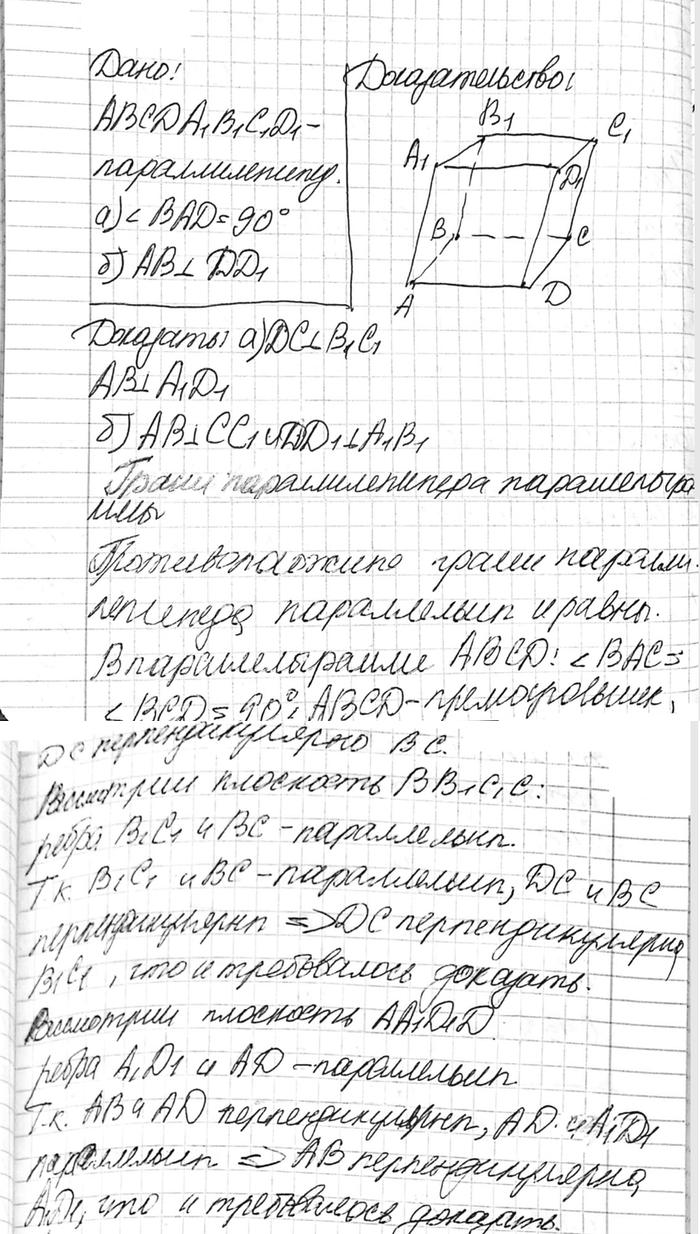 Дано:
Доказательство:
ABCDA₁B₁C₁D₁ -
параллилепипед.
а) ∠ BAD = 90°
б) AB ⊥ DD₁
B₁
C₁
A₁
D₁
B
C
A
D
Доказать: а) DC ⊥ B₁C₁
AB ⊥ A₁D₁
б) AB ⊥ CC₁ и DD₁ ⊥ A₁B₁
Грани параллилепипера параллелогра
ммы
Противоположные грани паралли-
лепипеда параллельны и равны.
В параллелограмме ABCD: ∠ BAC =
∠ BCD = 90°, ABCD - прямоугольник,
DC перпендикулярно BC.
Рассмотрим плоскость BB₁C₁C:
ребра B₁C₁ и BC - параллельны.
Т.к. B₁C₁ и BC - параллельны, DC и BC
перпендикулярны => DC перпендикулярна
B₁C₁, что и требовалось доказать.
Рассмотрим плоскость AA₁D₁D
ребра A₁D₁ и AD - параллельны
Т.к. AB и AD перпендикулярны, AD и A₁D₁
параллельны => AB перпендикулярна
A₁D₁, что и требовалось доказать.